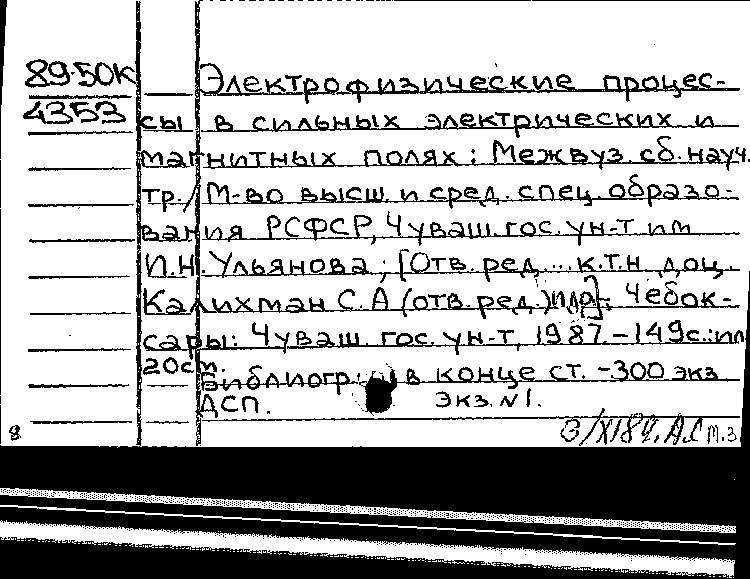 89-50К
4353
Электрофизические процес-
сы в сильных электрических и
магнитных полях: Межвуз. сб. науч.
тр. / М-во высш. и сред. спец. образо-
вания РСФСР, Чуваш. гос. ун-т им.
И.Н. Ульянова; [Отв. ред. ... к.т.н. доц.
Калихман С.А (отв. ред.) и др]. Чебок-
сары: Чуваш. гос. ун-т, 1987. - 149с.: ил
20см.
Библиогр. в конце ст. - 300 экз
ДСП. Экз. N1.
8